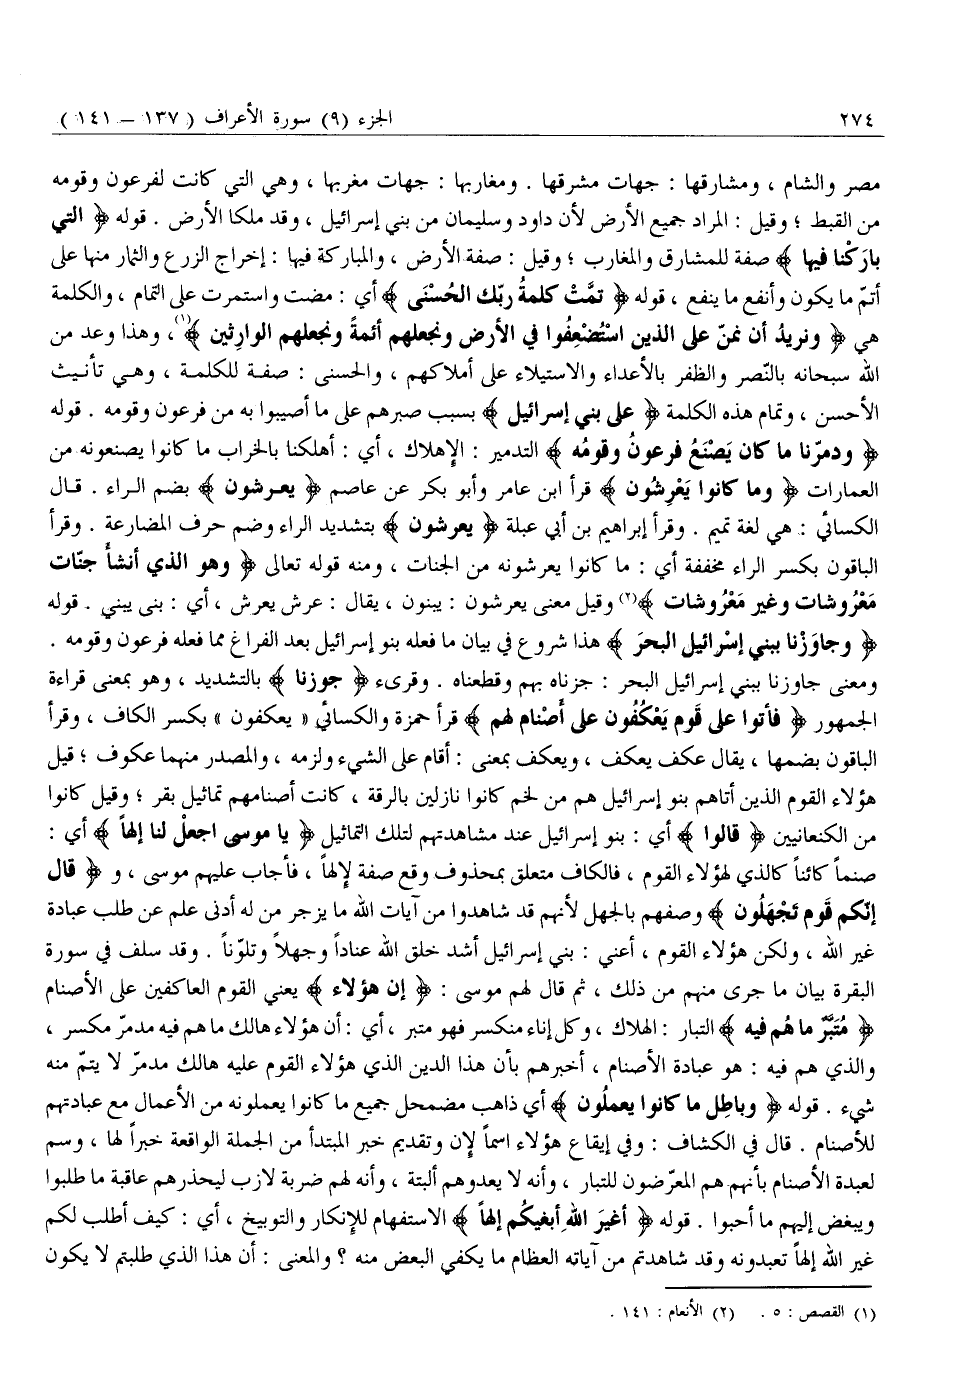 ٢٧٤ الجزء (٩) سورة الأعراف ( ١٣٧ – ١٤١ )
مصر والشام ، ومشارقها : جهات مشرقها . ومغاربها : جهات مغربها ، وهي التي كانت لفرعون وقومه
من القبط ؛ وقيل : المراد جميع الأرض لأن داود وسليمان من بني إسرائيل ، وقد ملكا الأرض . قوله ﴿ التي
بارَكْنا فيها ﴾ صفة للمشارق والمغارب ؛ وقيل : صفة الأرض ، والمباركة فيها : إخراج الزرع والثمار منها على
أتمّ ما يكون وأنفع ما ينفع ، قوله ﴿ تمَّتْ كلمةُ ربّك الحُسْنَى ﴾ أي : مضت واستمرت على التمام ، والكلمة
هي ﴿ ونريدُ أن نمنّ على الذين استُضْعِفُوا في الأرض ونجعلهم أئمةً ونجعلهم الوارِثين ﴾(١) ، وهذا وعد من
الله سبحانه بالنّصر والظفر بالأعداء والاستيلاء على أملاكهم ، والحسنى : صفة للكلمة ، وهي تأنيث
الأحسن ، وتمام هذه الكلمة ﴿ على بني إسرائيل ﴾ بسبب صبرهم على ما أصيبوا به من فرعون وقومه . قوله
﴿ ودمرّنا ما كان يَصْنَعُ فرعونُ وقومُه ﴾ التدمير : الإهلاك ، أي : أهلكنا بالخراب ما كانوا يصنعونه من
العمارات ﴿ وما كانوا يَعْرِشُون ﴾ قرأ ابن عامر وأبو بكر عن عاصم ﴿ يعرشون ﴾ بضم الراء . قال
الكسائي : هي لغة تميم . وقرأ إبراهيم بن أبي عبلة ﴿ يعرشون ﴾ بتشديد الراء وضم حرف المضارعة . وقرأ
الباقون بكسر الراء مخففة أي : ما كانوا يعرشونه من الجنات ، ومنه قوله تعالى ﴿ وهو الذي أنشأَ جنّات
مَعْرُوشات وغير مَعْرُوشات ﴾(٢) وقيل معنى يعرشون : يبنون ، يقال : عرش يعرش ، أي : بنى يبني . قوله
﴿ وجاوَزْنا ببني إسْرائيل البحرَ ﴾ هذا شروع في بيان ما فعله بنو إسرائيل بعد الفراغ مما فعله فرعون وقومه .
ومعنى جاوزنا ببني إسرائيل البحر : جزناه بهم وقطعناه . وقرىء ﴿ جوزنا ﴾ بالتشديد ، وهو بمعنى قراءة
الجمهور ﴿ فأتوا على قَوم يَعْكُفُون على أَصْنام لهم ﴾ قرأ حمزة والكسائي « يعكفون » بكسر الكاف ، وقرأ
الباقون بضمها ، يقال عكف يعكف ، ويعكف بمعنى : أقام على الشيء ولزمه ، والمصدر منهما عكوف ؛ قيل
هؤلاء القوم الذين أتاهم بنو إسرائيل هم من لخم كانوا نازلين بالرقة ، كانت أصنامهم تماثيل بقر ؛ وقيل كانوا
من الكنعانيين ﴿ قالوا ﴾ أي : بنو إسرائيل عند مشاهدتهم لتلك التماثيل ﴿ يا موسى اجعلْ لنا إلهاً ﴾ أي :
صنماً كائناً كالذي لهؤلاء القوم ، فالكاف متعلق بمحذوف وقع صفة لإلهاً ، فأجاب عليهم موسى ، و ﴿ قال
إنّكم قوم تَجْهَلُون ﴾ وصفهم بالجهل لأنهم قد شاهدوا من آيات الله ما يزجر من له أدنى علم عن طلب عبادة
غير الله ، ولكن هؤلاء القوم ، أعني : بني إسرائيل أشد خلق الله عناداً وجهلاً وتلوّناً . وقد سلف في سورة
البقرة بيان ما جرى منهم من ذلك ، ثم قال لهم موسى : ﴿ إن هؤلاء ﴾ يعني القوم العاكفين على الأصنام
﴿ مُتَبَّرٌ ما هُم فيه ﴾ التبار : الهلاك ، وكل إناء منكسر فهو متبر ، أي : أن هؤلاء هالك ما هم فيه مدمرّ مكسر ،
والذي هم فيه : هو عبادة الأصنام ، أخبرهم بأن هذا الدين الذي هؤلاء القوم عليه هالك مدمرّ لا يتمّ منه
شيء . قوله ﴿ وباطِل ما كانوا يعملُون ﴾ أي ذاهب مضمحل جميع ما كانوا يعملونه من الأعمال مع عبادتهم
للأصنام . قال في الكشاف : وفي إيقاع هؤلاء اسماً لإن وتقديم خبر المبتدأ من الجملة الواقعة خبراً لها ، وسم
لعبدة الأصنام بأنهم هم المعرّضون للتبار ، وأنه لا يعدوهم ألبتة ، وأنه لهم ضربة لازب ليحذرهم عاقبة ما طلبوا
ويبغض إليهم ما أحبوا . قوله ﴿ أغيرَ اللهِ أبغيكُم إلهاً ﴾ الاستفهام للإنكار والتوبيخ ، أي : كيف أطلب لكم
غير الله إلهاً تعبدونه وقد شاهدتم من آياته العظام ما يكفي البعض منه ؟ والمعنى : أن هذا الذي طلبتم لا يكون
(١) القصص : ٥ . (٢) الأنعام : ١٤١ .